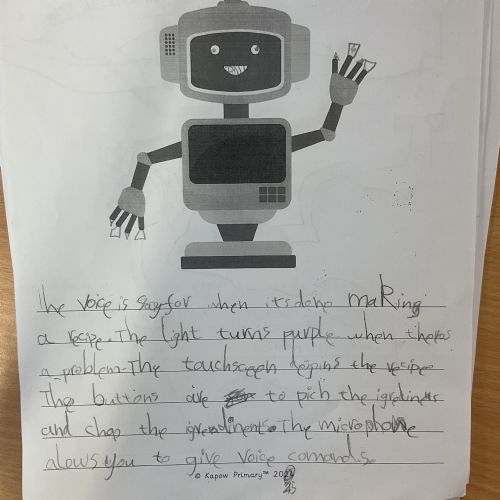 The voice is for when its done making
a recipe. The light turns purple when theres
a problem. The touchscreen the recipe
The buttons are to pich the igredients
and chop the igrendinents. The microphone
alows you to give voice comands.
© Kapow Primary™ 20
25